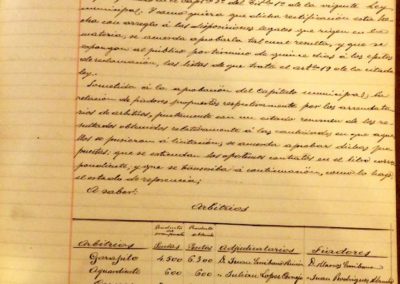 en el cap.º 2º del tit.º 1º de la vigente Ley
municipal. Y como quiera que dicha rectificación está he-
cha con arreglo á las disposiciones legales que rigen en la
materia, se acuerda aprobarla tal cual resulta, y que se
expongan al público por término de quince dias á los efectos
de reclamación, las listas de que trata el artº 19 de la citada
ley.
Sometida á la aprobación del Cabildo municipal, la
relación de fiadores propuestos respectivamente por los arrendata-
rios de arbitrios, juntamente con un estado resumen de los re-
sultados obtenidos relativamente á las cantidades en que aque-
llos se pusieron á licitación; se acuerda aprobar dichas pro-
puestas, que se extiendan los oportunos contratos en el libro corres-
pondiente, y que se transcriba á continuación, como lo hago,
el estado de referencia;
A saber:
Arbitrios
Arbitrios Producto del presupuesto Pesetas Producto obtenido Pesetas Adjudicatarios Fiadores
Garapito 4.500 6.300 D. Juan Emiliano D. Marcos Emiliano
Aguardiente 600 600 " Julian Lopez " Juan Rodriguez